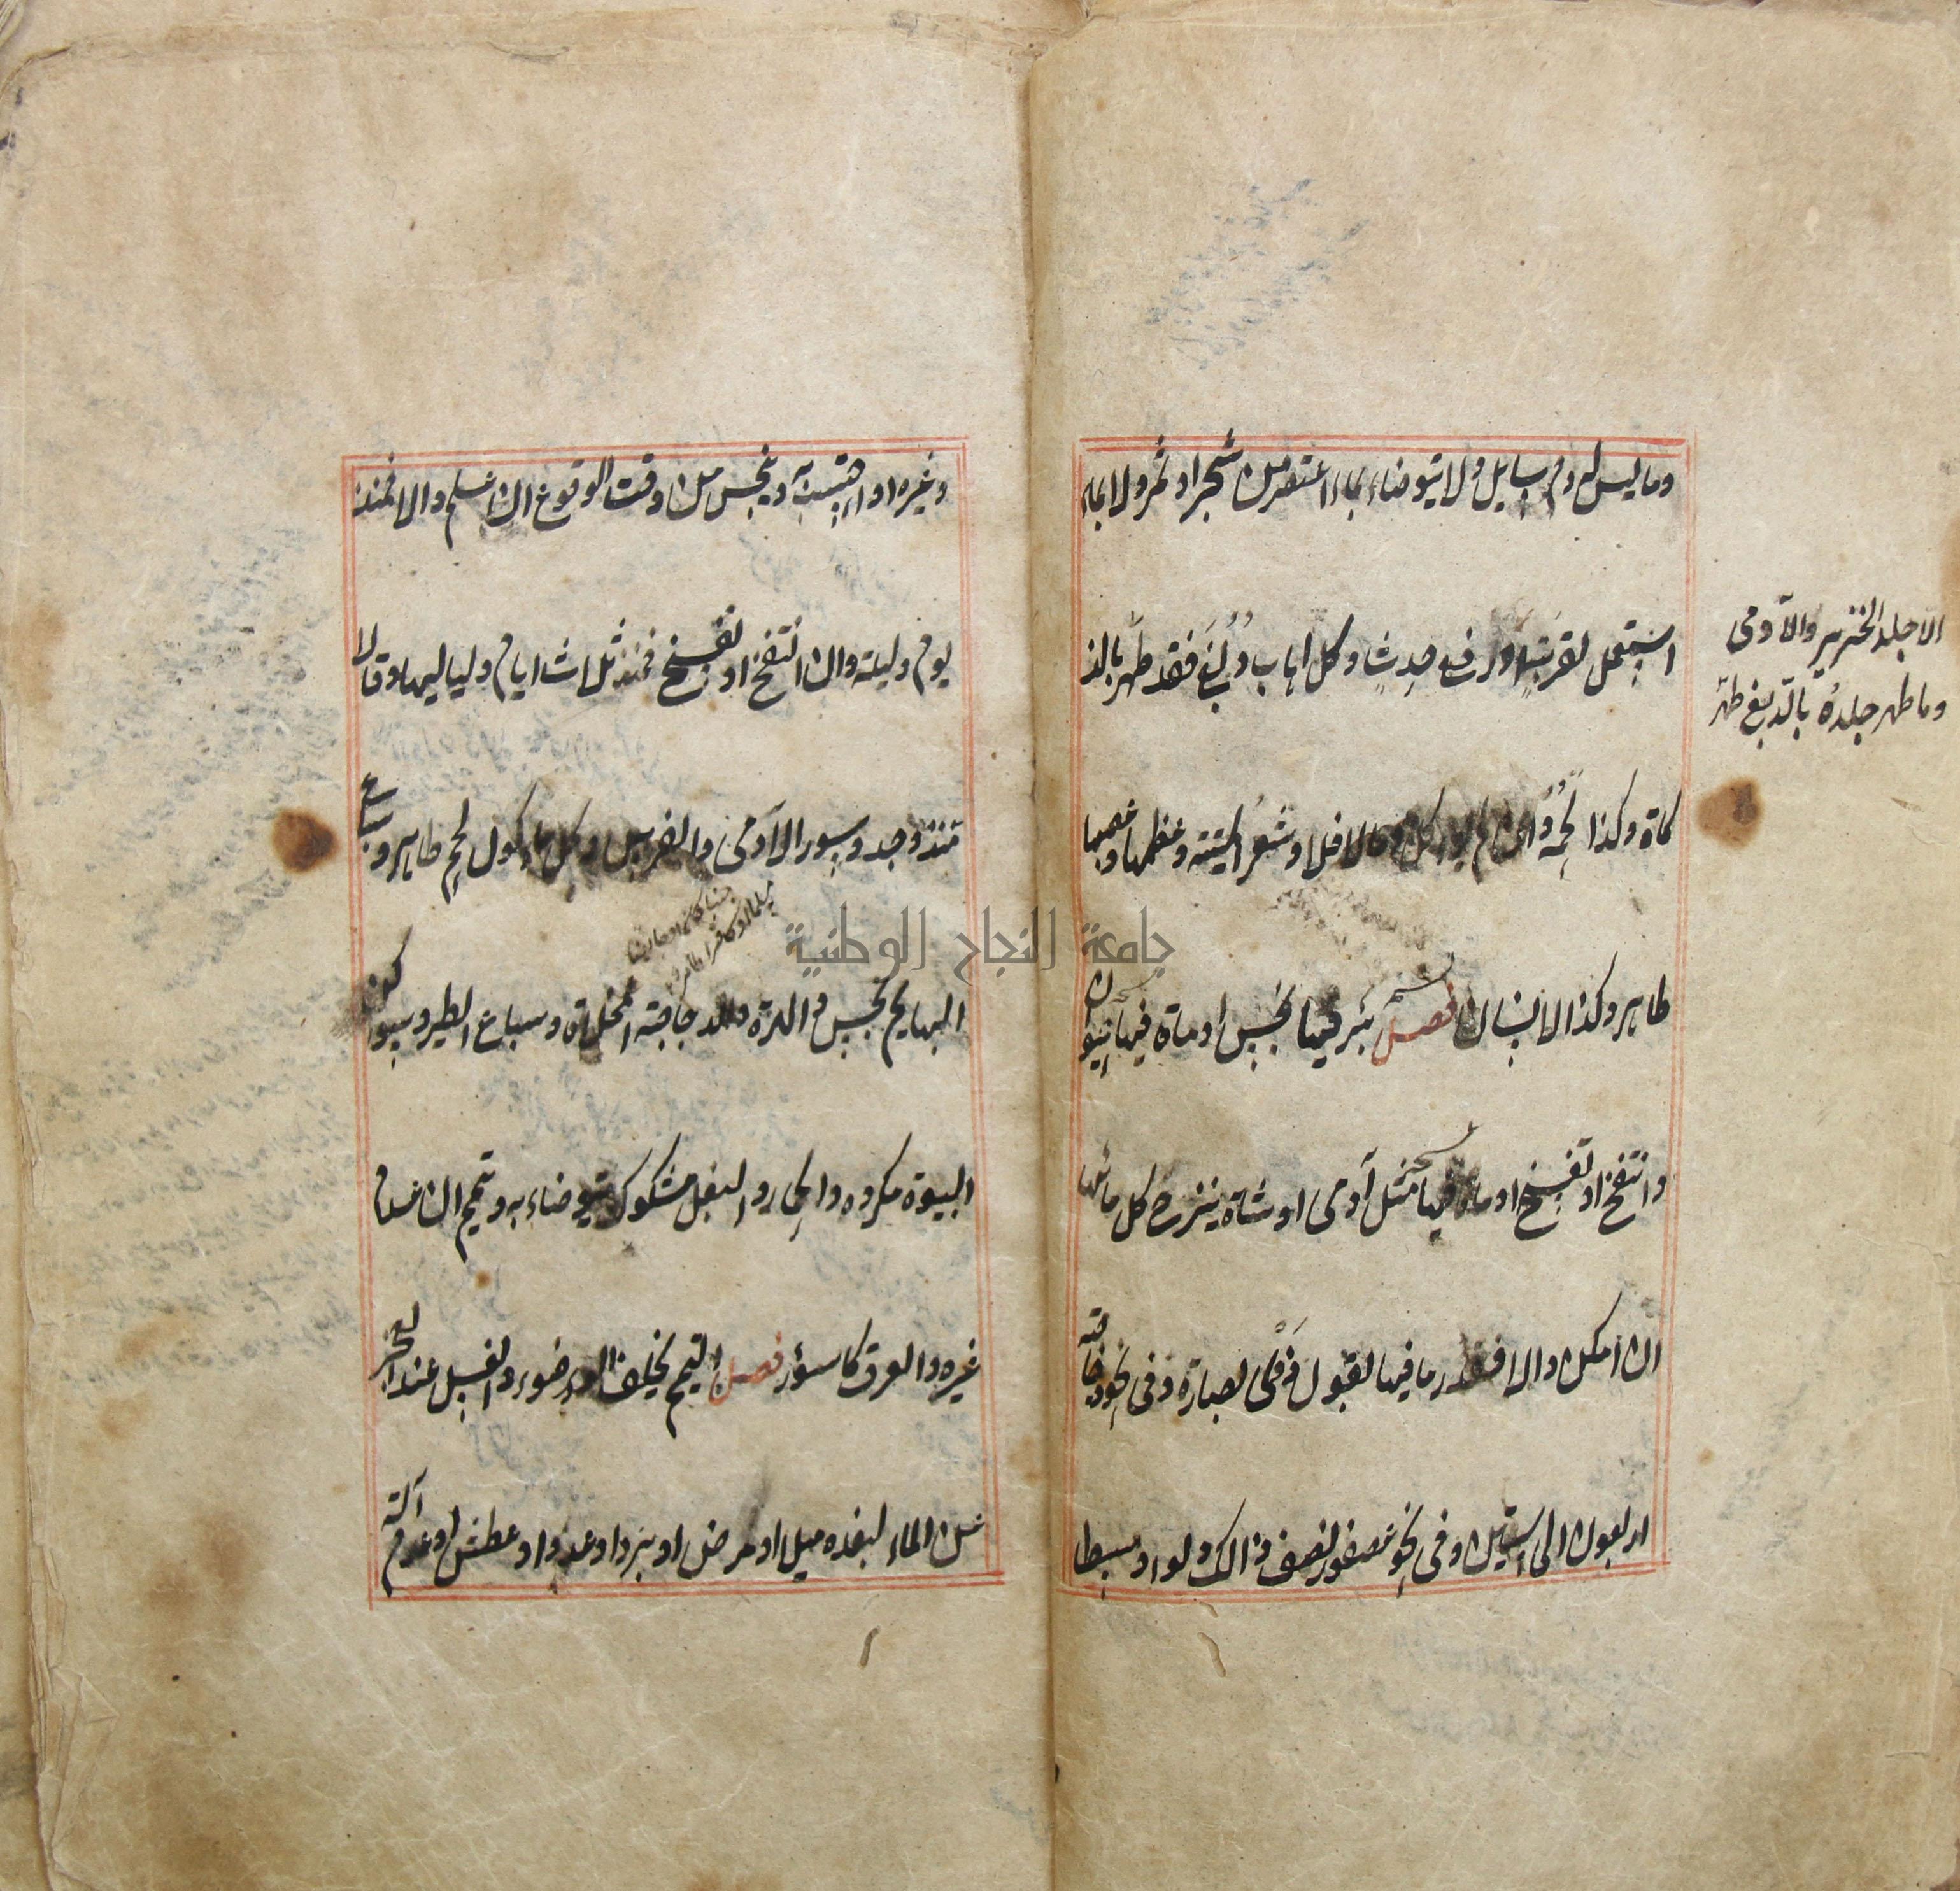 وما ليس له دم سايل ولا يتوضاء بماء اعتصر من شجر او ثمر ولا بماء
استعمل لقربة او رفع حدث وكل اهاب دبغ فقد طهر بالذ
كاة وكذا لحمه وان لم يوكل وما لا فلا وشعر الميتة وعظمها وعصبها
طاهر وكذا الانسان فصل بئر فيها نجس او مات فيها حيوان
وانتفخ او تفسخ او مات فيها مثل آدمى او شاة ينزح كل مائها
ان امكن والا فقدر ما فيها لقول ذوى بصارة وفى نحو دجاجة
اربعون الى ستين وفى نحو عصفور نصف ذالك ولو وسطا
الا جلد الخنزير والآدمى
وما طهر جلده بالدبغ طهر
وغيره احتسب به وينجس من وقت الوقوع ان علم والا فمنذ
يوم وليلة وان انتفخ او تفسخ فمنذ ثلاث ايام ولياليها وقالا
منذ وجد وسور الآدمى والفرس وكل ماكول لحم طاهر وسباع
البهايم نجس والهرة والدجاجة المخلاة وسباع الطير وسواكن
البيوت مكروه والحمار والبغل مشكوك يتوضاء به وتيمم ان عدم
غيره والعرق كالسؤر فصل التيمم يخلف الوضوء والغسل عند العجز
عن الماء لبعده ميلا او مرض او برد او عدو او عطش او عدم آلة
جامعة النجاح الوطنية